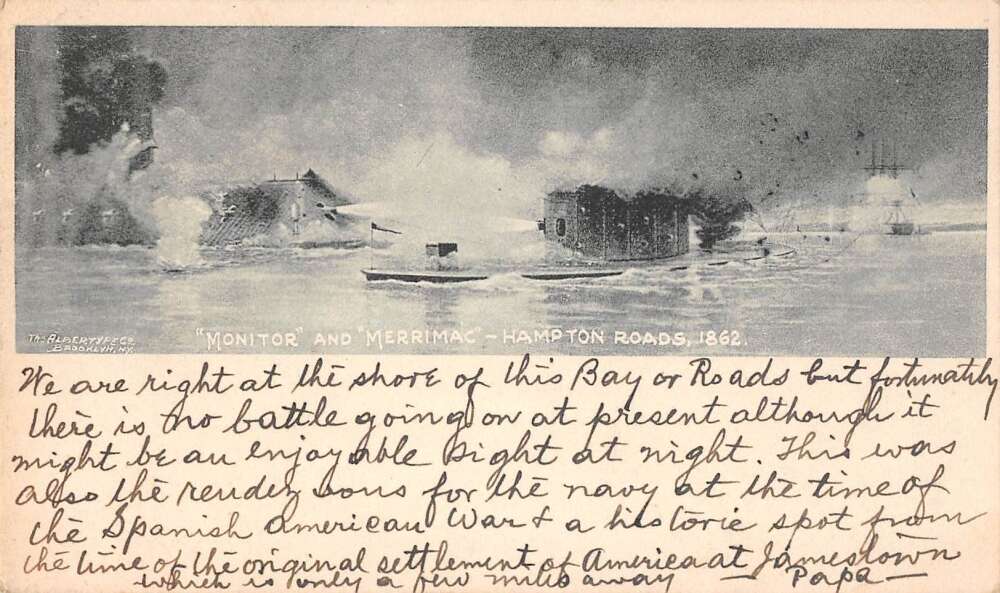 The Albertype Co.
Brooklyn, N.Y.
"Monitor" and "Merrimac" - Hampton Roads, 1862.
We are right at the shore of this Bay or Roads but fortunately
there is no battle going on at present although it
might be an enjoyable sight at night. This was
also the rendez vous for the navy at the time of
the Spanish American War & a historic spot from
the time of the original settlement of America at Jamestown
which is only a few miles away — Papa —